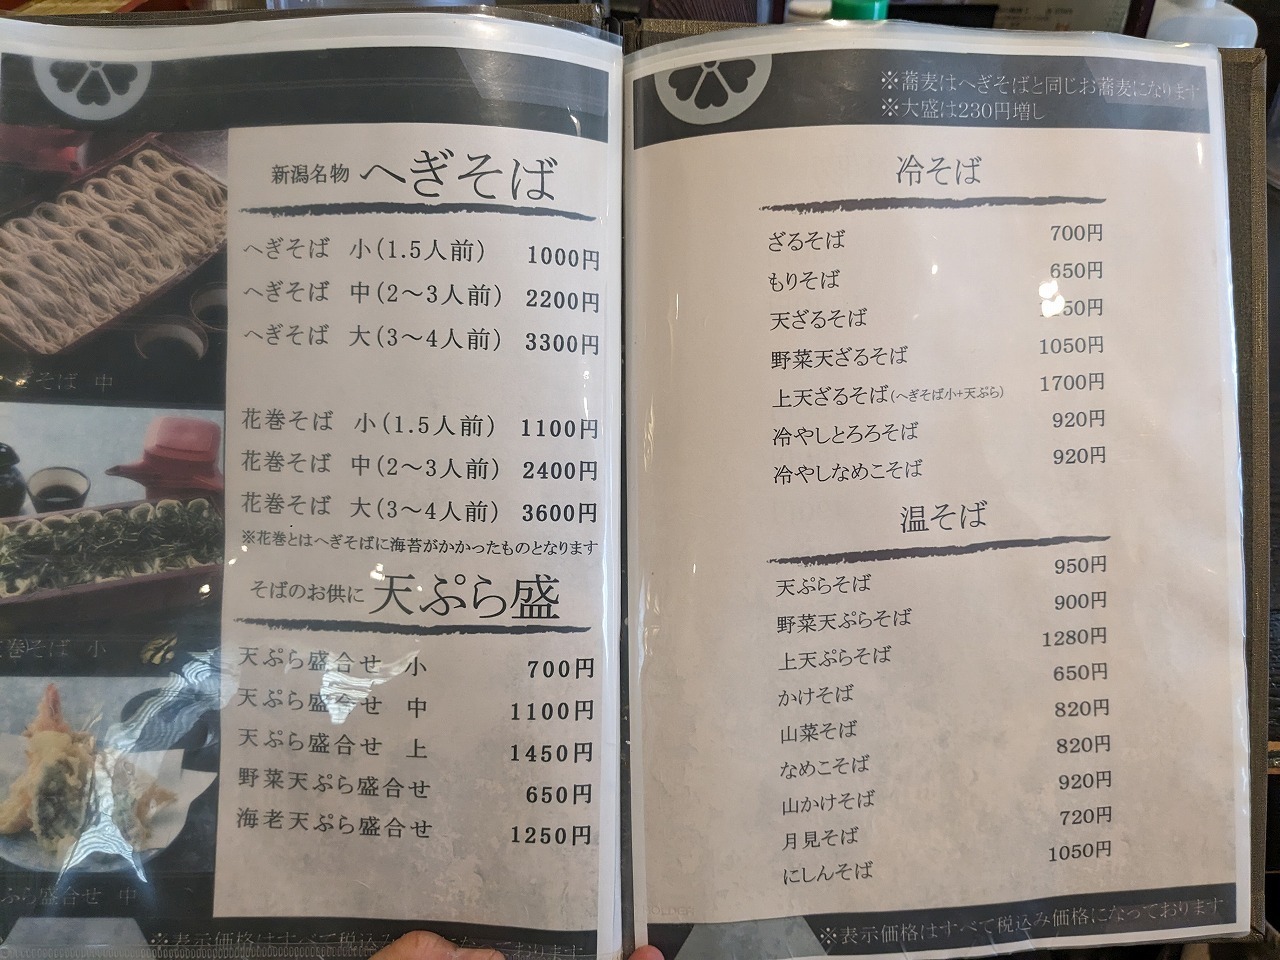 新潟名物 へぎそば
へぎそば 小(1.5人前) 1000円
へぎそば 中(2〜3人前) 2200円
へぎそば 大(3〜4人前) 3300円
花巻そば 小(1.5人前) 1100円
花巻そば 中(2〜3人前) 2400円
花巻そば 大(3〜4人前) 3600円
※花巻とはへぎそばに海苔がかかったものとなります
そばのお供に 天ぷら盛
天ぷら盛合せ 小 700円
天ぷら盛合せ 中 1100円
天ぷら盛合せ 上 1450円
野菜天ぷら盛合せ 650円
海老天ぷら盛合せ 1250円
ぎそば 中
巻そば 小
ぷら盛合せ 中
※表示価格はすべて税込み価格になっております
※蕎麦はへぎそばと同じお蕎麦になります
※大盛は230円増し
冷そば
ざるそば 700円
もりそば 650円
天ざるそば 50円
野菜天ざるそば 1050円
上天ざるそば(へぎそば小+天ぷら) 1700円
冷やしとろろそば 920円
冷やしなめこそば 920円
温そば
天ぷらそば 950円
野菜天ぷらそば 900円
上天ぷらそば 1280円
かけそば 650円
山菜そば 820円
なめこそば 820円
山かけそば 920円
月見そば 720円
にしんそば 1050円
※表示価格はすべて税込み価格になっております